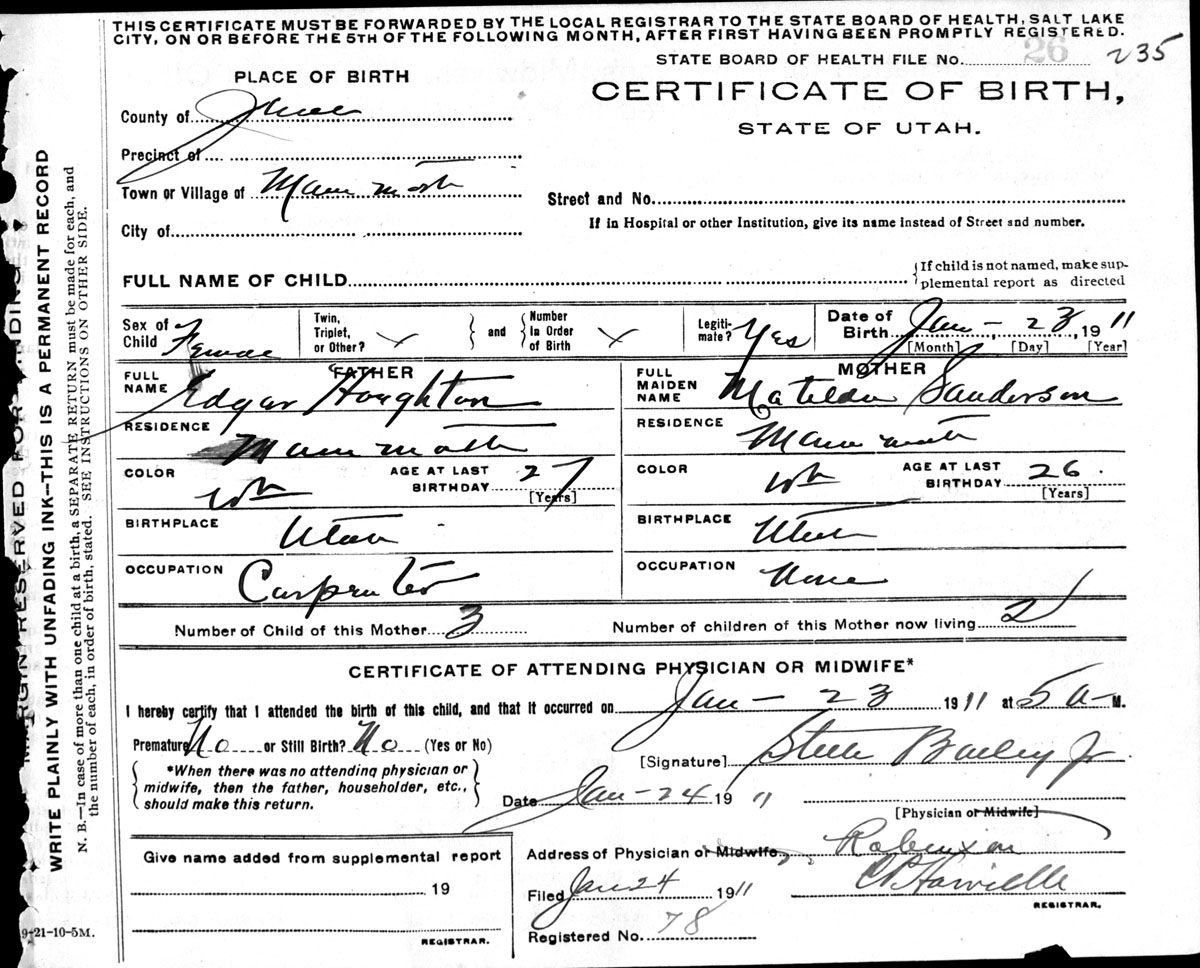 THIS CERTIFICATE MUST BE FORWARDED BY THE LOCAL REGISTRAR TO THE STATE BOARD OF HEALTH, SALT LAKE
CITY, ON OR BEFORE THE 5TH OF THE FOLLOWING MONTH, AFTER FIRST HAVING BEEN PROMPTLY REGISTERED.
STATE BOARD OF HEALTH FILE No. 26 235
PLACE OF BIRTH
CERTIFICATE OF BIRTH,
STATE OF UTAH.
County of Juab
Precinct of
Town or Village of Mammoth
Street and No.
City of
If in Hospital or other Institution, give its name instead of Street and number.
FULL NAME OF CHILD
If child is not named, make sup-
plemental report as directed
Sex of Child Female
Twin, Triplet, or Other? and Number In Order of Birth
Legiti-mate? Yes
Date of Birth Jan - 23, 1911
[Month] [Day] [Year]
FATHER
FULL NAME Edgar Houghton
RESIDENCE Mammoth
COLOR wh
AGE AT LAST BIRTHDAY 27
[Years]
BIRTHPLACE Utah
OCCUPATION Carpenter
MOTHER
FULL MAIDEN NAME Matilda Sanderson
RESIDENCE Mammoth
COLOR wh
AGE AT LAST BIRTHDAY 26.
[Years]
BIRTHPLACE Utah
OCCUPATION None
Number of Child of this Mother 3
Number of children of this Mother now living 2
CERTIFICATE OF ATTENDING PHYSICIAN OR MIDWIFE*
I hereby certify that I attended the birth of this child, and that it occurred on Jan - 23 1911 at 5 a-M.
Premature No or Still Birth? No (Yes or No)
[Signature] Steele Bailey Jr
*When there was no attending physician or
midwife, then the father, householder, etc.,
should make this return.
Date Jan - 24 1911
[Physician or Midwife]
Address of Physician or Midwife, Robinson
Filed Jan 24 1911
REGISTRAR.
Registered No. 78
Give name added from supplemental report
19
REGISTRAR.
9-21-10-5M.
MARGIN RESERVED FOR BINDING
WRITE PLAINLY WITH UNFADING INK—THIS IS A PERMANENT RECORD
N. B.—In case of more than one child at a birth, a SEPARATE RETURN must be made for each, and
the number of each, in order of birth, stated. SEE INSTRUCTIONS ON OTHER SIDE.